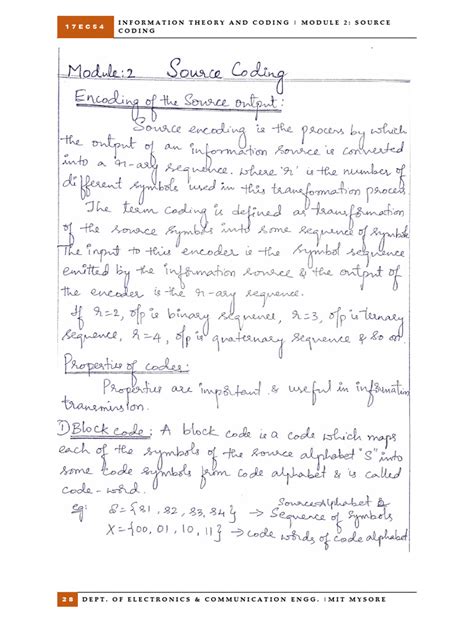 17EC54
INFORMATION THEORY AND CODING | MODULE 2: SOURCE
CODING
Module:2 Source Coding
Encoding of the Source output:
Source encoding is the process by which
the output of an information source is converted
into a r-ary sequence. where 'r' is the number of
different symbols used in this transformation process.
The term coding is defined as transformation
of the source symbols into some sequence of symbols
The input to this encoder is the symbol sequence
emitted by the information source & the output of
the encoder is the r-ary sequence.
If r=2, o/p is binary sequence, r=3, o/p is ternary
sequence, r=4, o/p is quaternary sequence & so on.
Properties of codes:
Properties are important & useful in information
transmission.
1) Block code: A block code is a code which maps
each of the symbols of the source alphabet "S" into
some code symbols from code alphabet & is called
code-word.
Eg: S={S1, S2, S3, S4} → Source Alphabet &
Sequence of Symbols
X={00, 01, 10, 11} → code words of code alphabet
28 DEPT. OF ELECTRONICS & COMMUNICATION ENGG. | MIT MYSORE